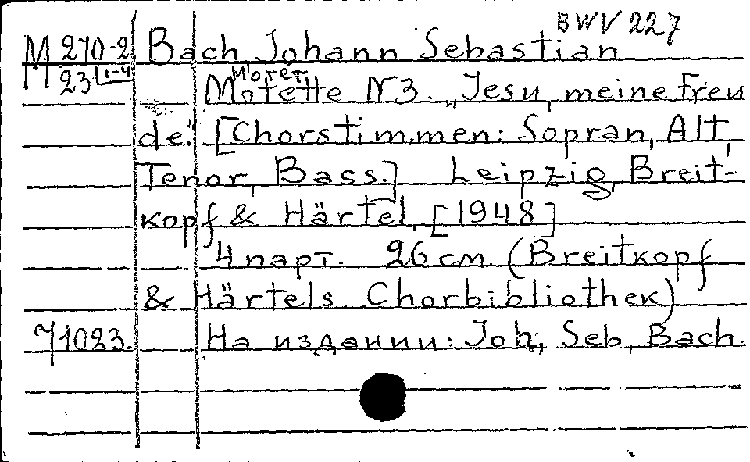 BWV 227
M 270-2 Bach Johann Sebastian
23/1-4 Мотет.
Motette N3. „Jesu, meine Freu
de." [Chorstimmen: Sopran, Alt,
Tenor, Bass.] Leipzig, Breit-
kopf & Härtel, [1948]
4 парт. 26 см. (Breitkopf
& Härtels Chorbibliothek)
71023. На издании: Joh, Seb, Bach.